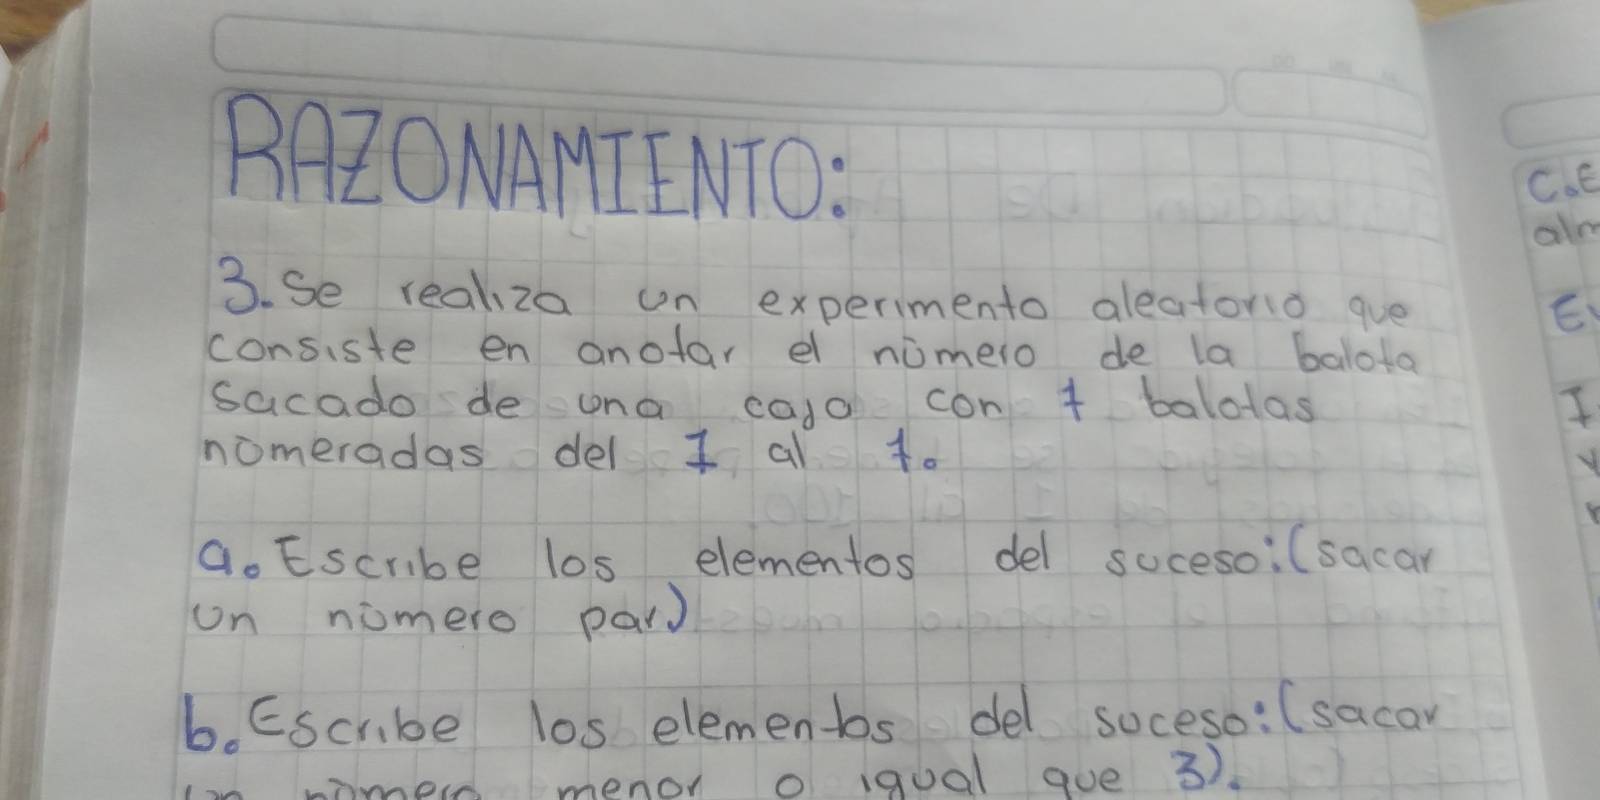 RAZONAMIENTO:
3. Se realiza un experimento aleatorio que
consiste en anotar el número de la balota
sacado de una caja con 7 balotas
numeradas del 1 al 7.
a. Escribe los elementos del suceso: (sacar
un número par)
b. Escribe los elementos del suceso: (sacar
un número menor o igual que 3).